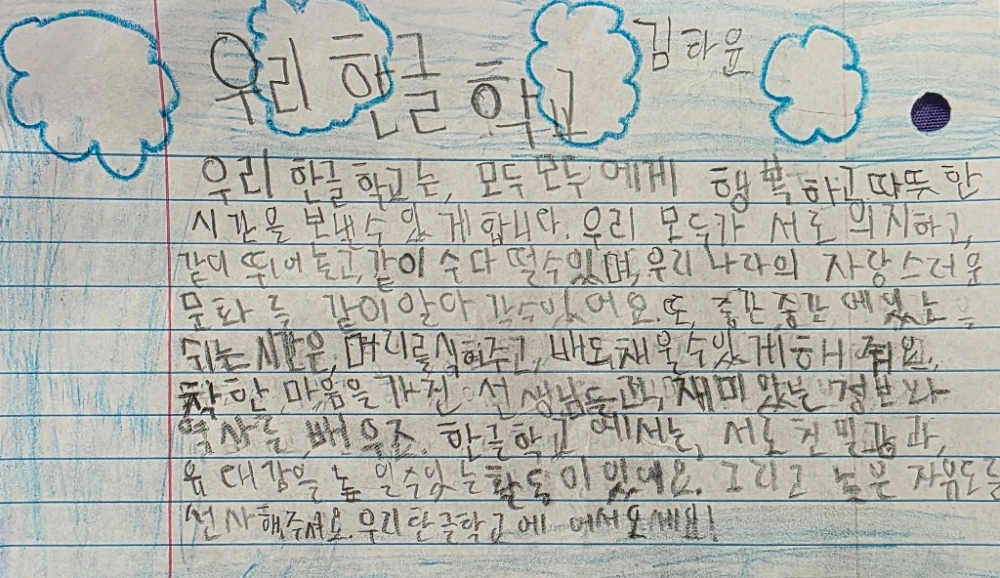 우리 한글 학교
김타운
우리 한글 학교는, 모두모두에게 행복하고 따뜻한
시간을 보낼수 있게합니다. 우리 모두가 서로 의지하고,
같이 뛰어 놀고, 같이 수다 떨수있며, 우리나라의 자랑스러운
문화를 같이 알아 갈수있어요. 또, 중간 중간에있는
쉬는시간은, 머리를식혀주고, 배도채울수있게해 줘요.
착한 마음을 가진 선생님들과, 재미있는 정보와
역사를, 배우죠. 한글학교에서는, 서로 친밀감과,
유대감을 높일수있는 활동이있어요. 그리고 높은 자유도를
선사해주셔요. 우리한글학교에 어서오세요!